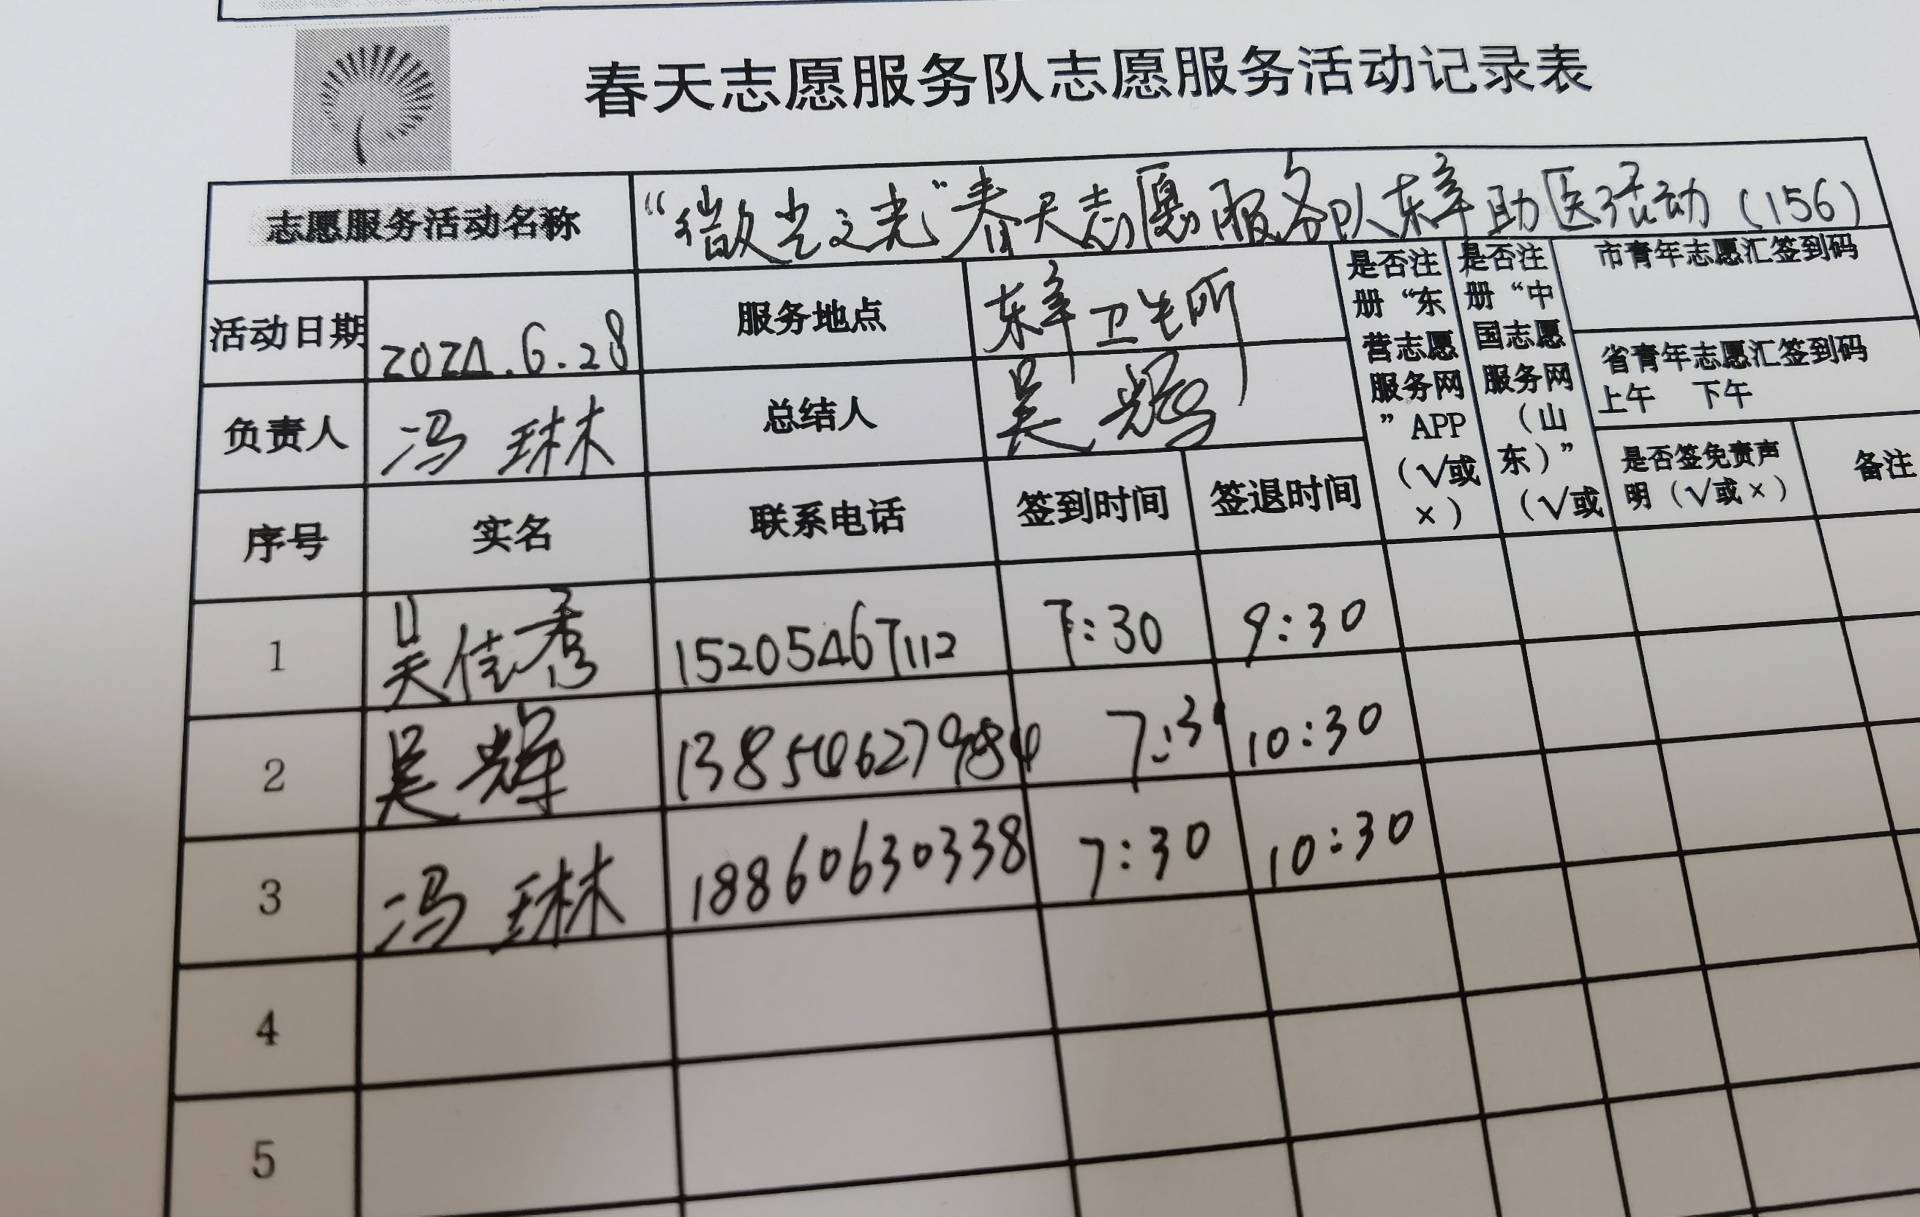 春天志愿服务队志愿服务活动记录表
志愿服务活动名称 “微光之光”春天志愿服务队东辛助医活动(156)
活动日期 2024.6.28 服务地点 东辛卫生所
负责人 冯琳 总结人 吴辉
是否注册“东营志愿服务网”APP（√或×）
是否注册“中国志愿服务网（山东）”（√或
市青年志愿汇签到码
省青年志愿汇签到码
上午 下午
是否签免责声明（√或×） 备注
序号 实名 联系电话 签到时间 签退时间
1 吴佳秀 15205467112 7:30 9:30
2 吴辉 13854627984 7:30 10:30
3 冯琳 18860630338 7:30 10:30
4
5